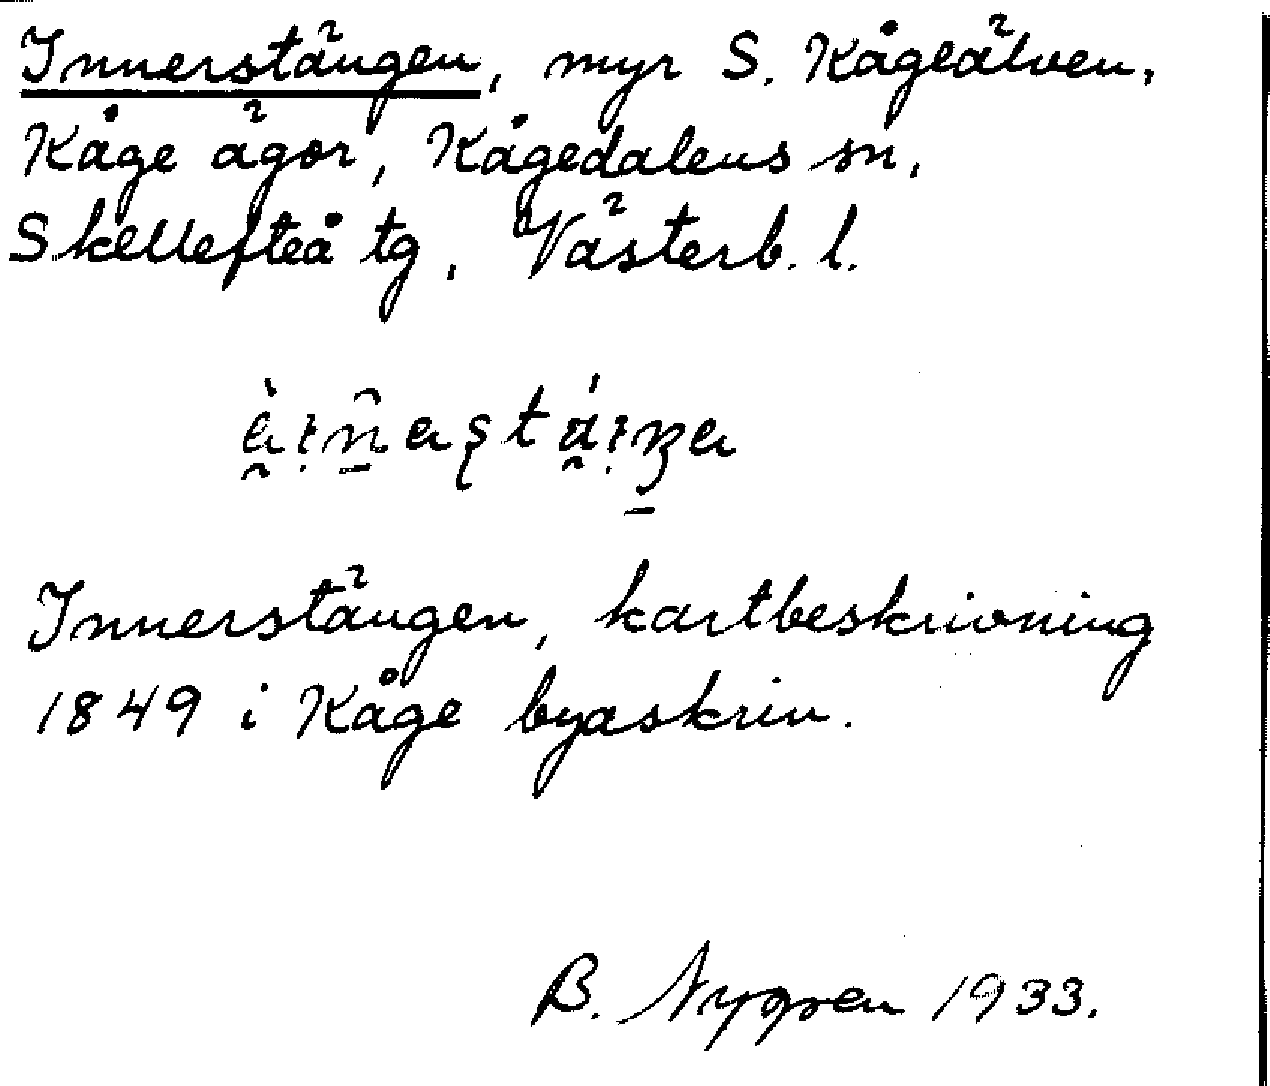 Innerstängen, myr S. Kågeälven,
Kåge ägor, Kågedalens sn,
Skellefteå tg, Västerb. l.
Innerstängen, kartbeskrivning
1849 i Kåge byaskrin.
B. Nygren 1933.